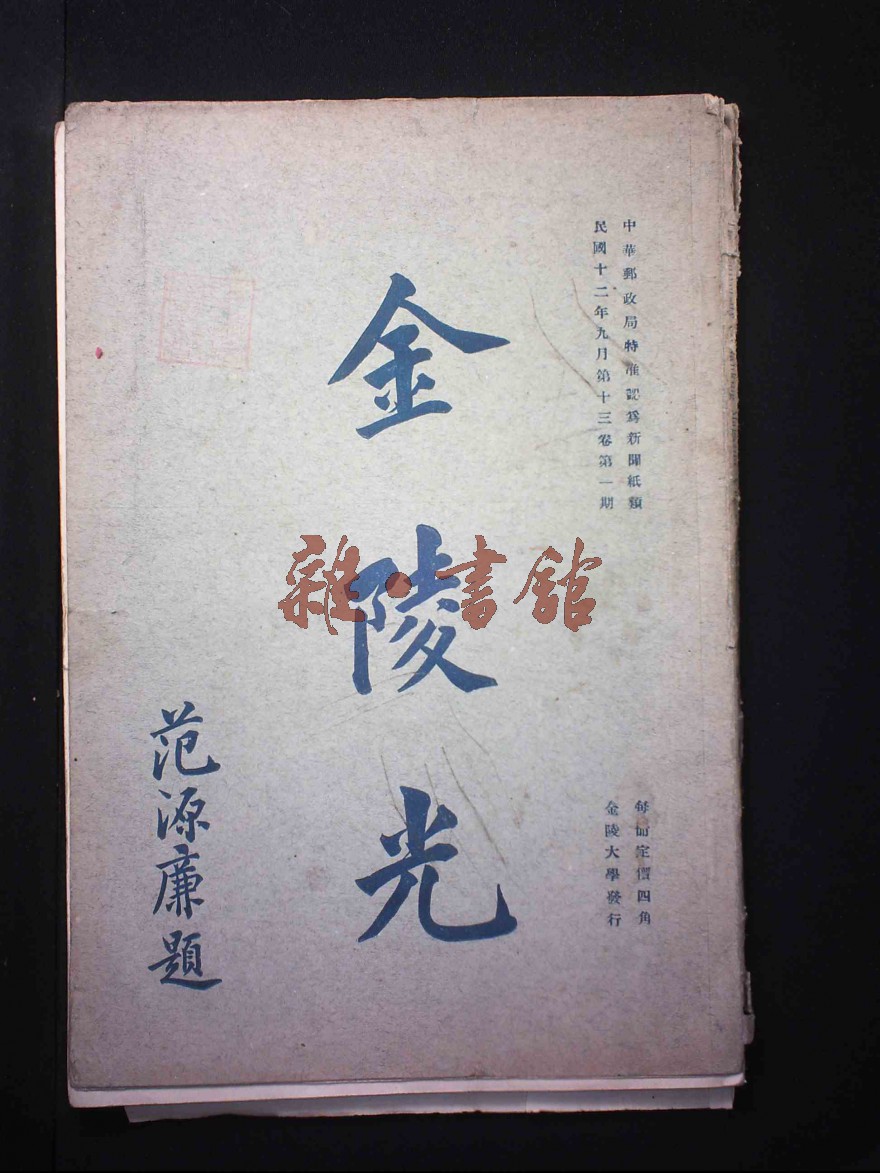 中華郵政局特准認爲新聞紙類
民國十二年九月第十三卷第一期
每冊定價四角
金陵大學發行
金陵光
范源廉題
雜·書館